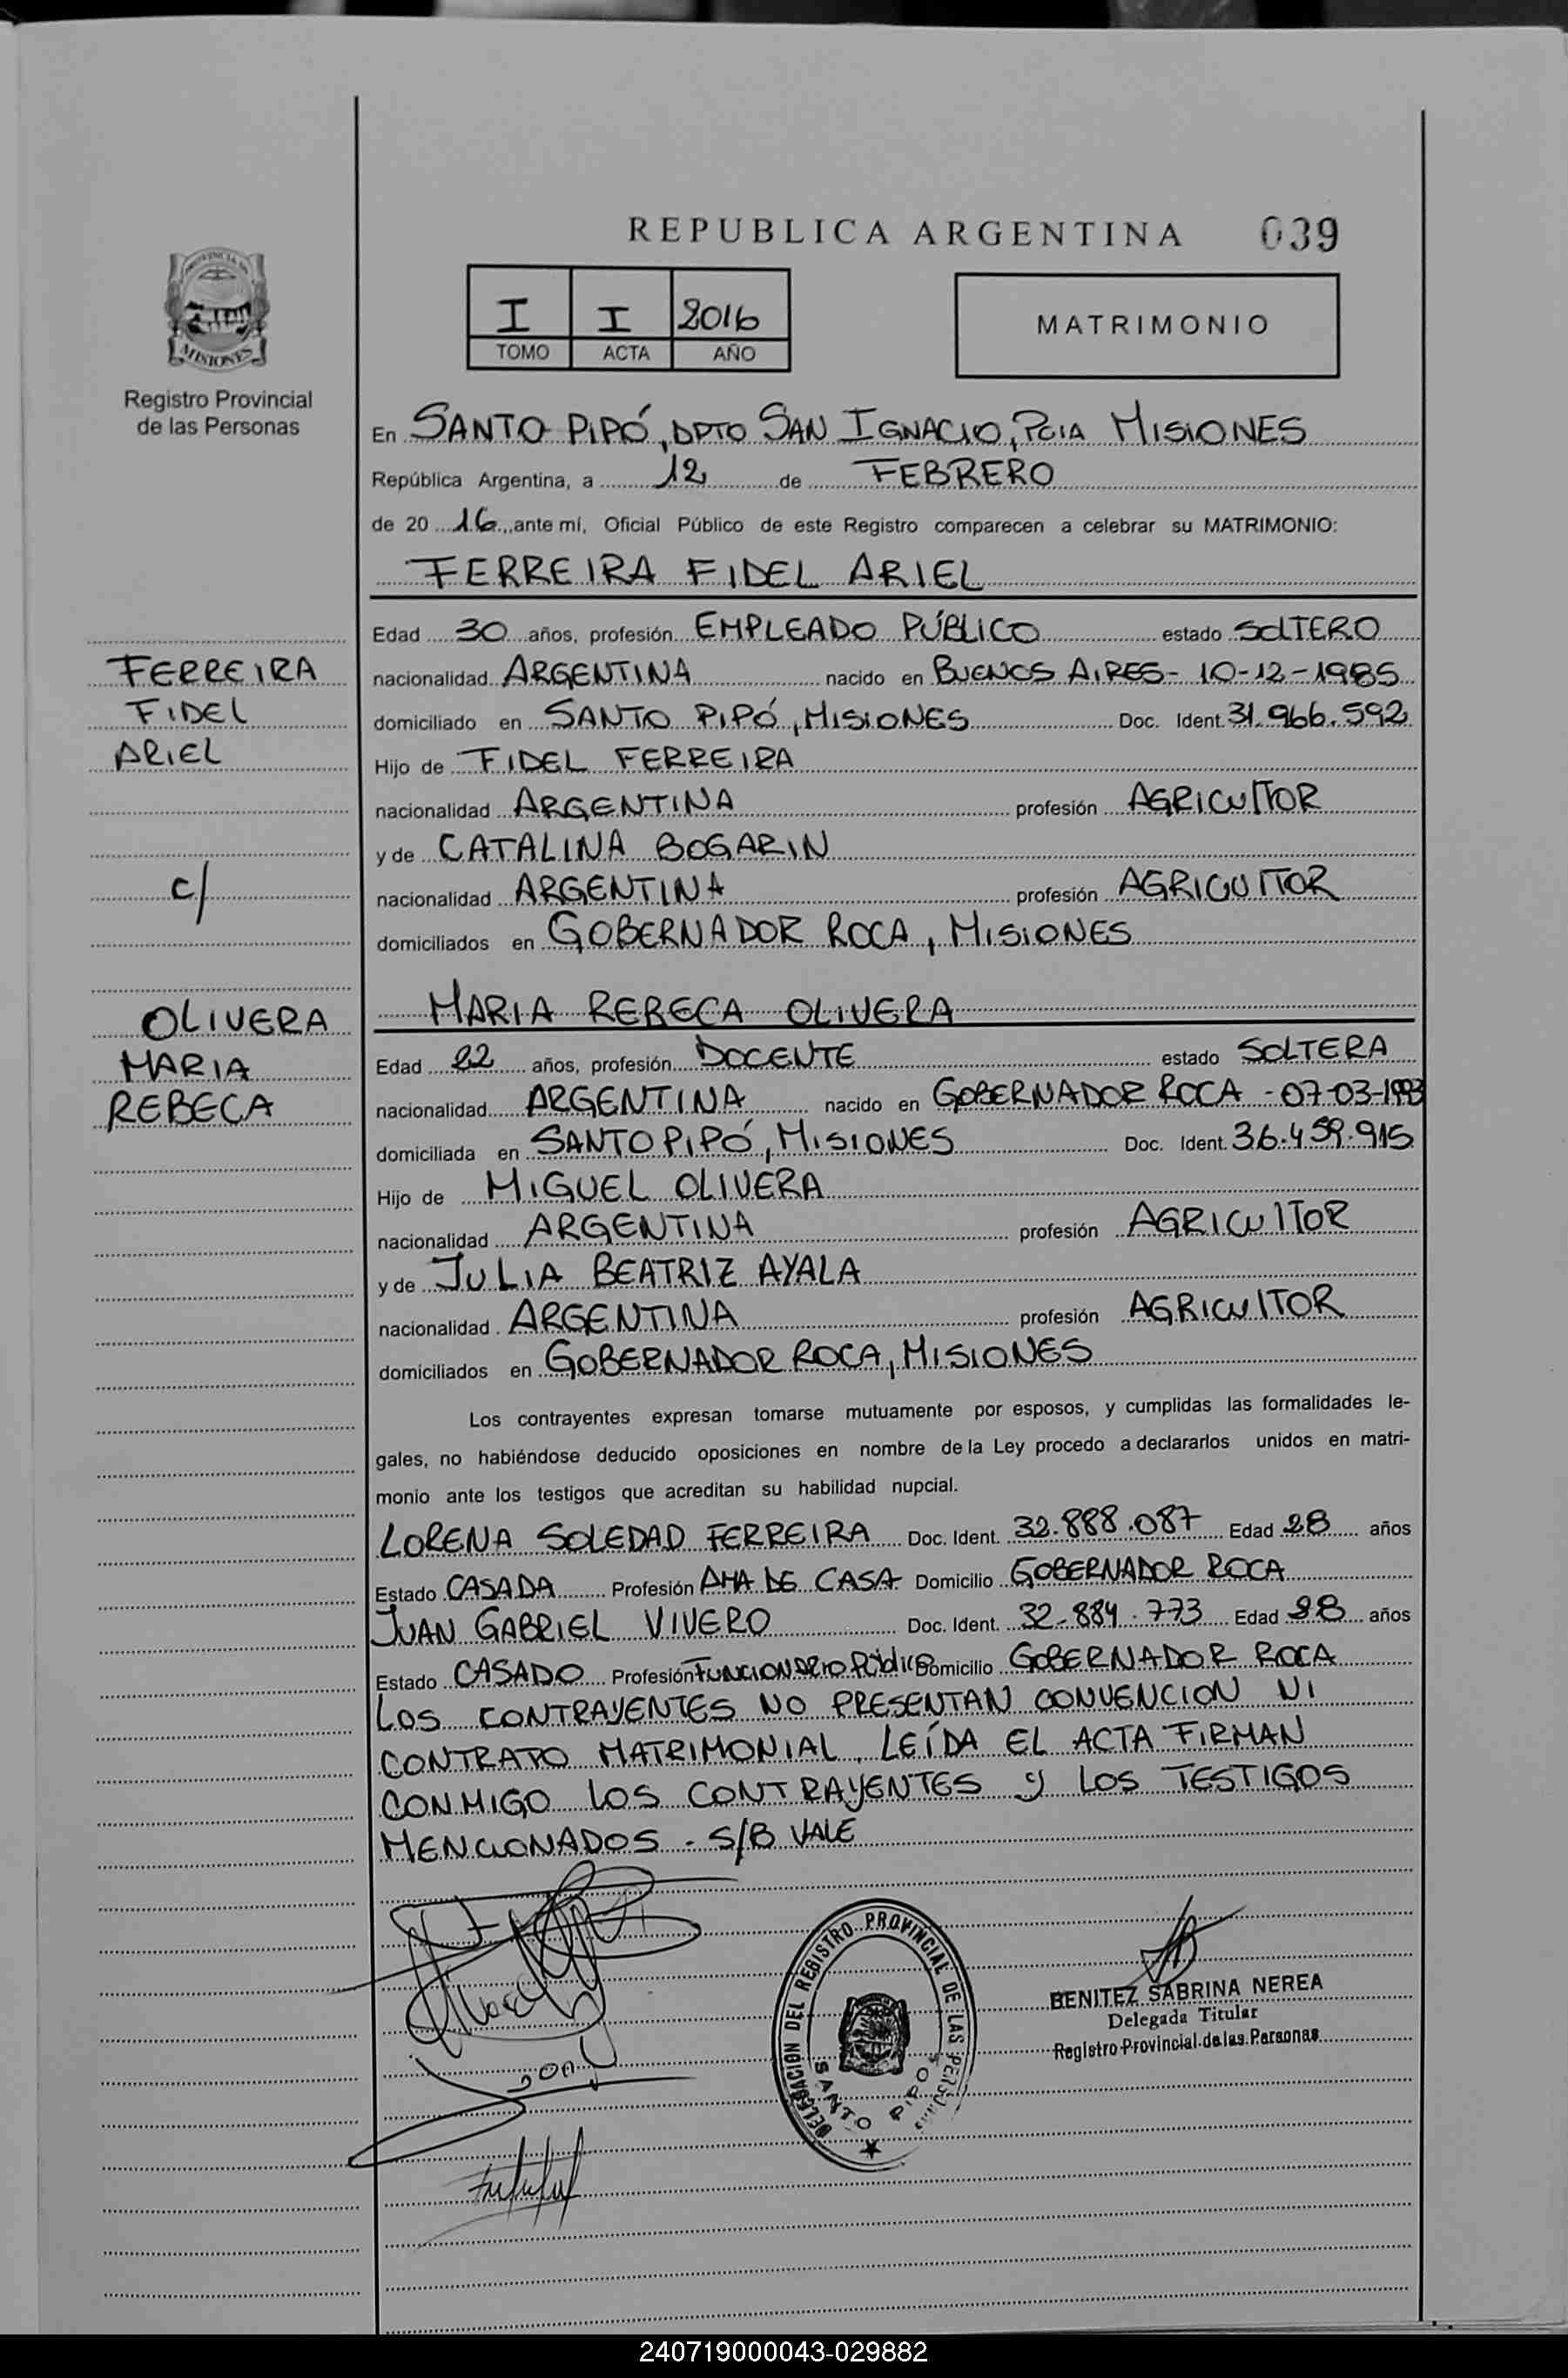 REPUBLICA ARGENTINA 039
PROVINCIA DE
MISIONES
Registro Provincial
de las Personas
I I 2016
TOMO ACTA AÑO
MATRIMONIO
En SANTO PIPÓ, DPTO SAN IGNACIO, PCIA MISIONES
República Argentina, a 12 de FEBRERO
de 20 16, ante mí, Oficial Público de este Registro comparecen a celebrar su MATRIMONIO:
FERREIRA FIDEL ARIEL
Edad 30 años, profesión EMPLEADO PÚBLICO estado SOLTERO
nacionalidad ARGENTINA nacido en BUENOS AIRES - 10-12-1985
domiciliado en SANTO PIPÓ, MISIONES Doc. Ident. 31.966.592
Hijo de FIDEL FERREIRA
nacionalidad ARGENTINA profesión AGRICULTOR
y de CATALINA BOGARIN
nacionalidad ARGENTINA profesión AGRICULTOR
domiciliados en GOBERNADOR ROCA, MISIONES
FERREIRA
FIDEL
ARIEL
c/
OLIVERA
MARIA
REBECA
MARIA REBECA OLIVERA
Edad 22 años, profesión DOCENTE estado SOLTERA
nacionalidad ARGENTINA nacido en GOBERNADOR ROCA - 07-03-1993
domiciliada en SANTO PIPÓ, MISIONES Doc. Ident. 36.459.915
Hijo de MIGUEL OLIVERA
nacionalidad ARGENTINA profesión AGRICULTOR
y de JULIA BEATRIZ AYALA
nacionalidad ARGENTINA profesión AGRICULTOR
domiciliados en GOBERNADOR ROCA, MISIONES
Los contrayentes expresan tomarse mutuamente por esposos, y cumplidas las formalidades le-
gales, no habiéndose deducido oposiciones en nombre de la Ley procedo a declararlos unidos en matri-
monio ante los testigos que acreditan su habilidad nupcial.
LORENA SOLEDAD FERREIRA Doc. Ident. 32.888.087 Edad 28 años
Estado CASADA Profesión AMA DE CASA Domicilio GOBERNADOR ROCA
JUAN GABRIEL VIVERO Doc. Ident. 32.884.773 Edad 28 años
Estado CASADO Profesión FUNCIONARIO PÚBLICO Domicilio GOBERNADOR ROCA
LOS CONTRAYENTES NO PRESENTAN CONVENCION NI
CONTRATO MATRIMONIAL. LEÍDA EL ACTA FIRMAN
CONMIGO LOS CONTRAYENTES Y LOS TESTIGOS
MENCIONADOS - S/B VALE
DELEGACIÓN DEL REGISTRO PROVINCIAL DE LAS PERSONAS
SANTO PIPO
BENITEZ SABRINA NEREA
Delegada Titular
Registro Provincial de las Personas
240719000043-029882